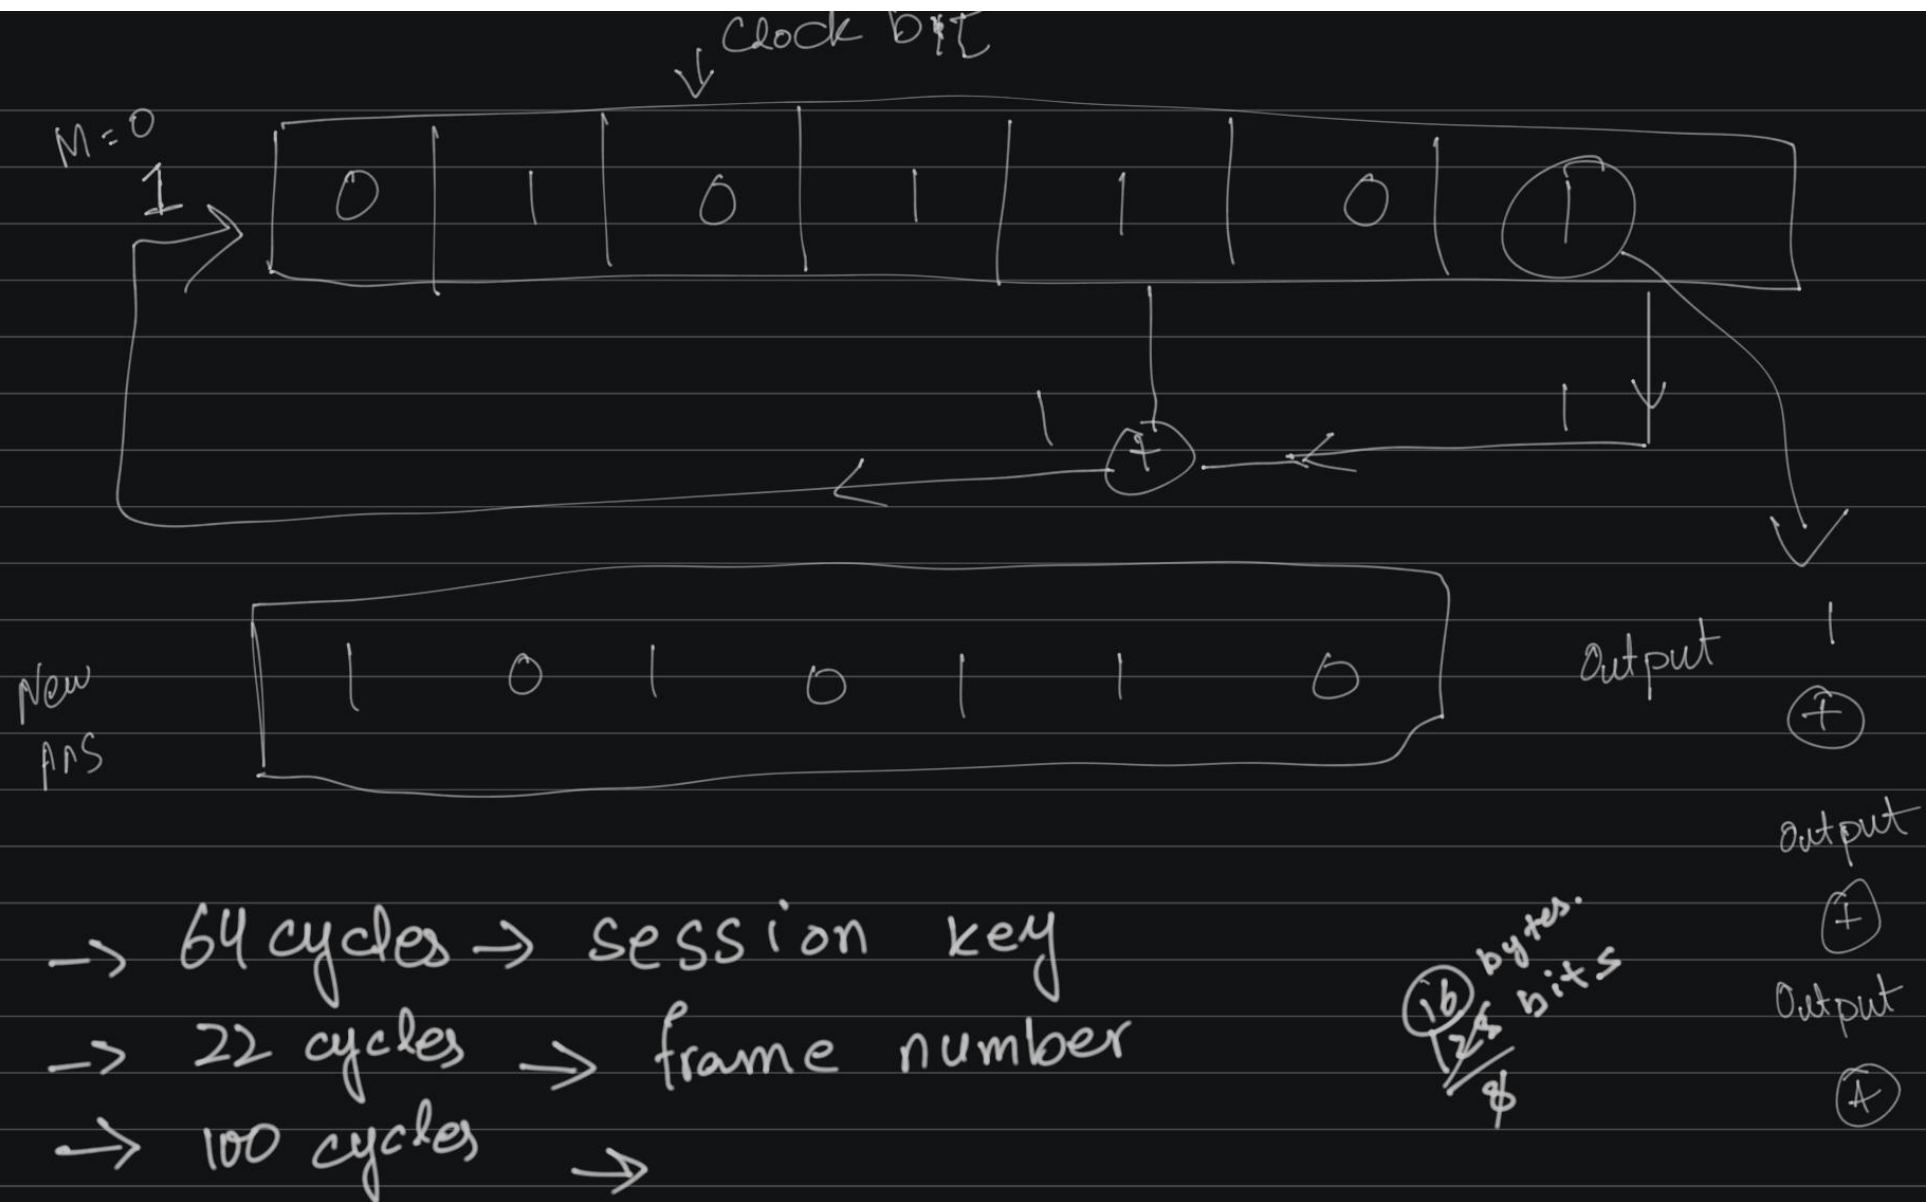 Clock bit
M=0
1
0 1 0 1 1 0 1
1 + 1
New
Ans
1 0 1 0 1 1 0
Output 1
+
Output
+
Output
+
→ 64 cycles → session key
→ 22 cycles → frame number
→ 100 cycles →
16 bytes.
128 bits
8